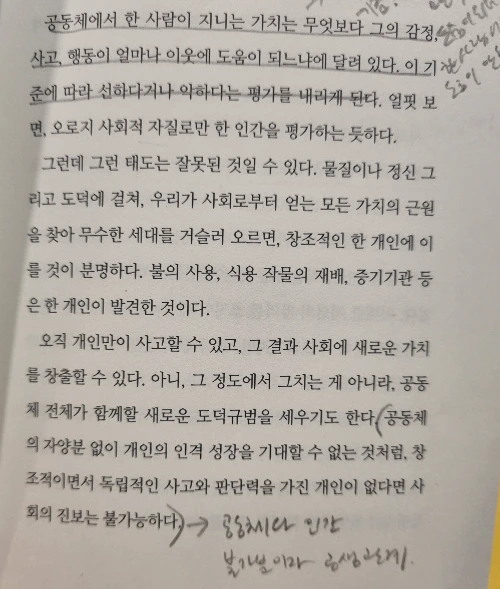 공동체에서 한 사람이 지니는 가치는 무엇보다 그의 감정,
사고, 행동이 얼마나 이웃에 도움이 되느냐에 달려 있다. 이 기
준에 따라 선하다거나 악하다는 평가를 내리게 된다. 얼핏 보
면, 오로지 사회적 자질로만 한 인간을 평가하는 듯하다.
그런데 그런 태도는 잘못된 것일 수 있다. 물질이나 정신 그
리고 도덕에 걸쳐, 우리가 사회로부터 얻는 모든 가치의 근원
을 찾아 무수한 세대를 거슬러 오르면, 창조적인 한 개인에 이
를 것이 분명하다. 불의 사용, 식용 작물의 재배, 증기기관 등
은 한 개인이 발견한 것이다.
오직 개인만이 사고할 수 있고, 그 결과 사회에 새로운 가치
를 창출할 수 있다. 아니, 그 정도에서 그치는 게 아니라, 공동
체 전체가 함께할 새로운 도덕규범을 세우기도 한다. (공동체
의 자양분 없이 개인의 인격 성장을 기대할 수 없는 것처럼, 창
조적이면서 독립적인 사고와 판단력을 가진 개인이 없다면 사
회의 진보는 불가능하다.) → 공동체이다 인간
불가분이자 공생관계.